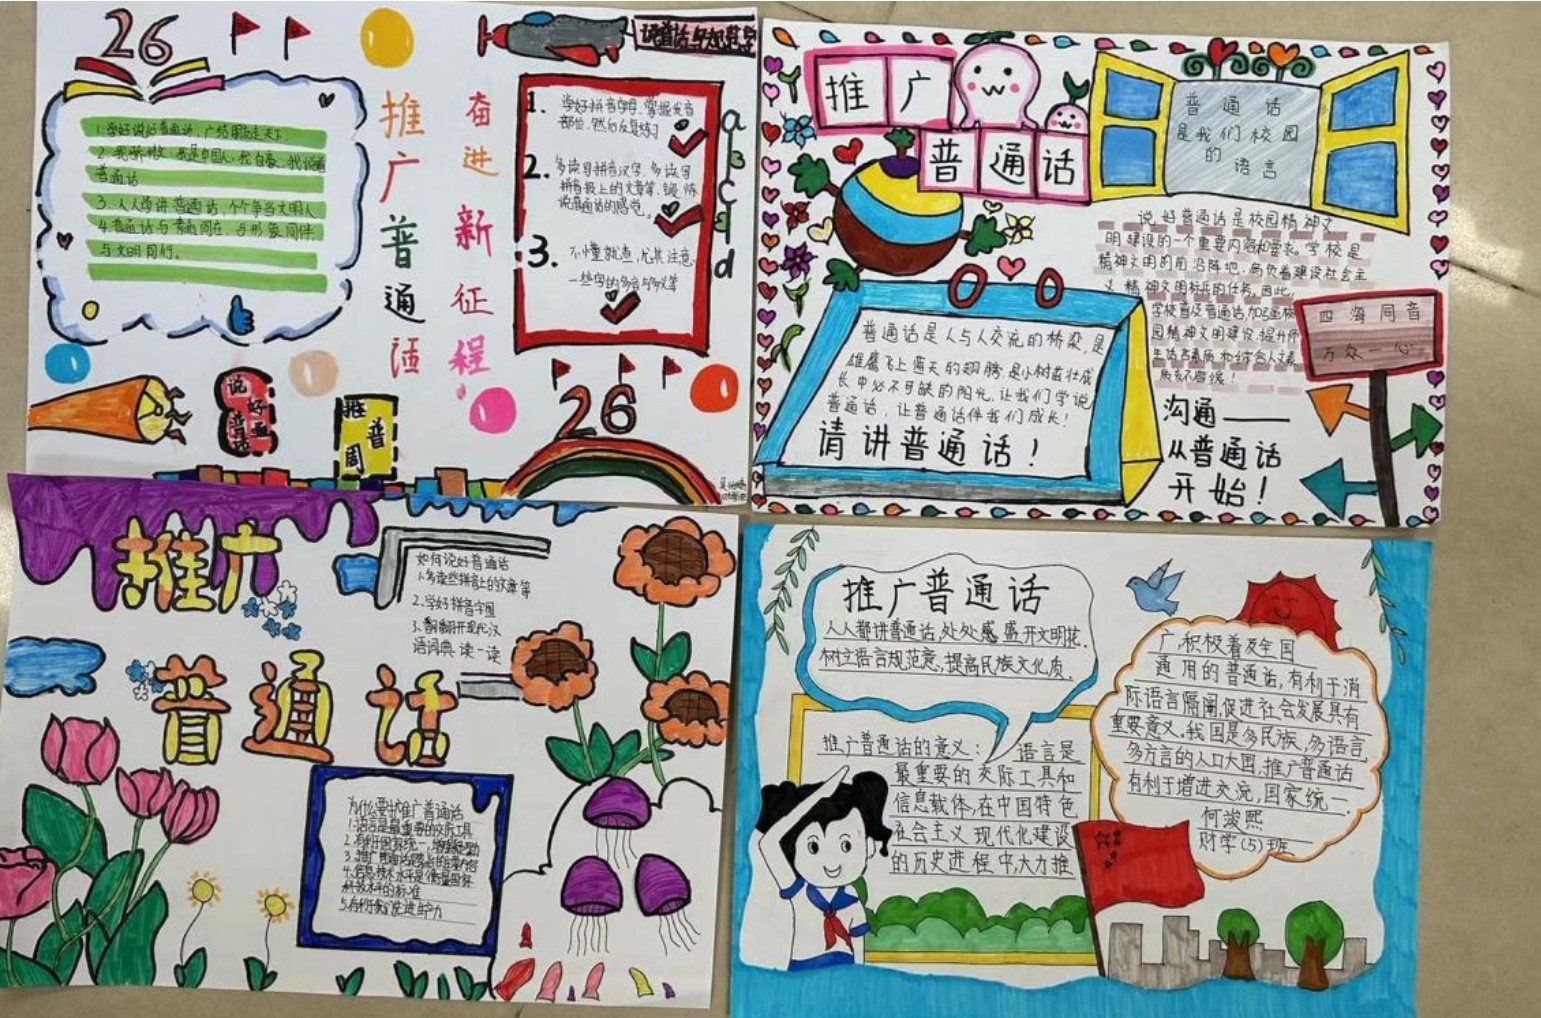 26
1.学好说好普通话,广结朋友走天下.
普通话
3.人人学讲普通话,个个争当文明人
4.普通话与素质同在,与形象同伴.
与文明同行.
推广普通话
奋进新征程
1.学好拼音字母,掌握发音
部位,然后反复练习
2.
拼音报上的文章等,锻炼
说普通话的感觉。
3.不懂就查,尤其注意
一些字的多音与多义等
a
B
C
d
说好普通话
推普周
26
推广
普通话
普通话
是我们校园
的语言
说好普通话是校园精神文
明建设的一个重要内容和要求。学校是
精神文明的前沿阵地,肩负着建设社会主
义精神文明标兵的任务,因此,
学校普及普通话加强校
园精神文明建设,提升师
四海同音
万众一心
普通话是人与人交流的桥梁,是
雄鹰飞上蓝天的翅膀,是小树茁壮成
长中必不可缺的阳光,让我们学说
普通话,让普通话伴我们成长!
请讲普通话!
沟通——
从普通话
开始!
推广
普通话
如何说好普通话
1.多读些拼音上的文章等
2.学好拼音字母
3.翻开现代汉
语词典读一读
为什么要推广普通话
1.语言是最重要的交际工具
推广普通话
人人都讲普通话,处处感盛开文明花.
树立语言规范意,提高民族文化质.
推广普通话的意义:语言是
最重要的交际工具和
信息载体,在中国特色
社会主义现代化建设
的历史进程中,大力推
广,积极着及全国
通用的普通话,有利于消
际语言隔阂,促进社会发展具有
重要意义,我国是多民族,多语言,
多方言的人口大国,推广普通话
有利于增进交流,国家统一.
何浚熙
财学(5)班